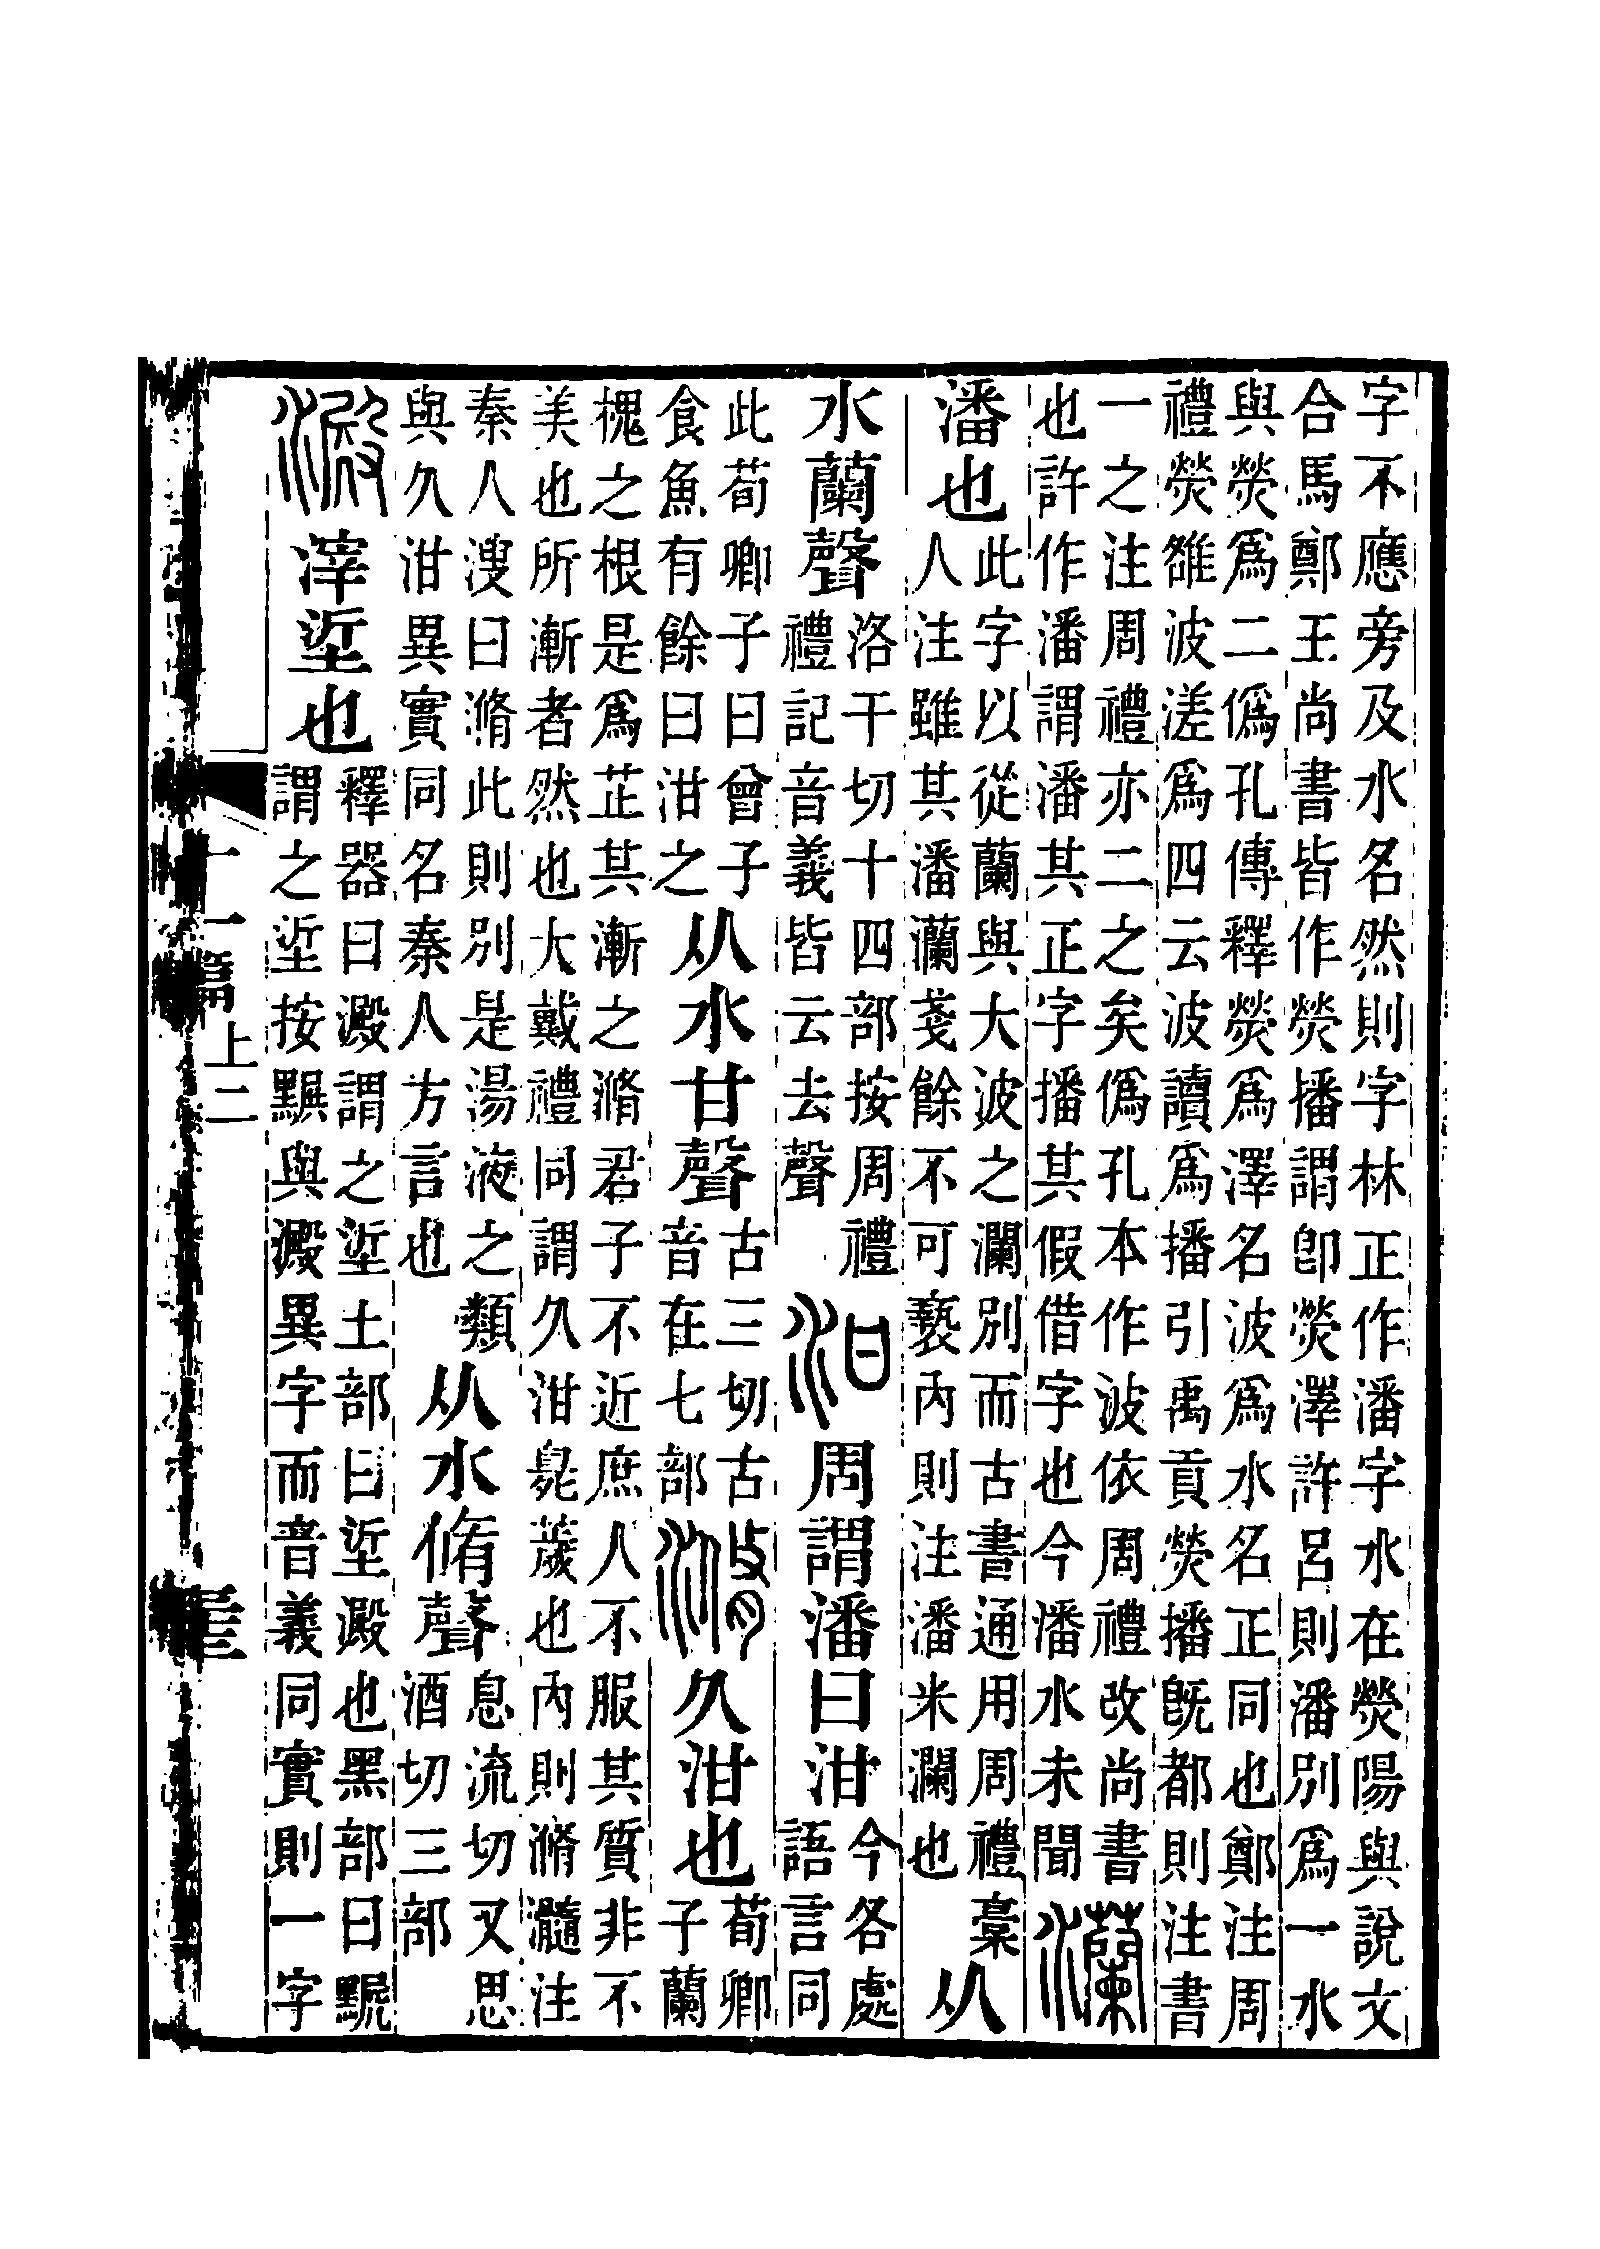 字不應旁及水名然則字林正作潘字水在熒陽與說文
合馬鄭王尚書皆作熒播謂卽熒澤許呂則潘別爲一水
與熒爲二僞孔傳釋熒爲澤名波爲水名正同也鄭注周
禮熒雒波溠爲四云波讀爲播引禹貢熒播旣都則注書
一之注周禮亦二之矣僞孔本作波依周禮改尚書
也許作潘謂潘其正字播其假借字也今潘水未聞
灡
潘也
此字以從蘭與大波之瀾別而古書通用周禮槀
人注雖其潘灡戔餘不可褻內則注潘米瀾也
从
水蘭聲
洛干切十四部按周禮
禮記音義皆云去聲
泔周謂潘曰泔
今各處
語言同
此荀卿子曰曾子
食魚有餘曰泔之
从水甘聲
古三切古
音在七部
滫久泔也
荀卿
子蘭
槐之根是爲芷其漸之滫君子不近庶人不服其質非不
美也所漸者然也大戴禮同謂久泔臰薉也內則滫瀡注
秦人溲曰滫此則別是湯液之類
與久泔異實同名秦人方言也
从水脩聲
息流切又思
酒切三部
澱滓垽也
釋器曰澱謂之垽土部曰垽澱也黑部曰黰
謂之垽按黰與澱異字而音義同實則一字
十一篇上二